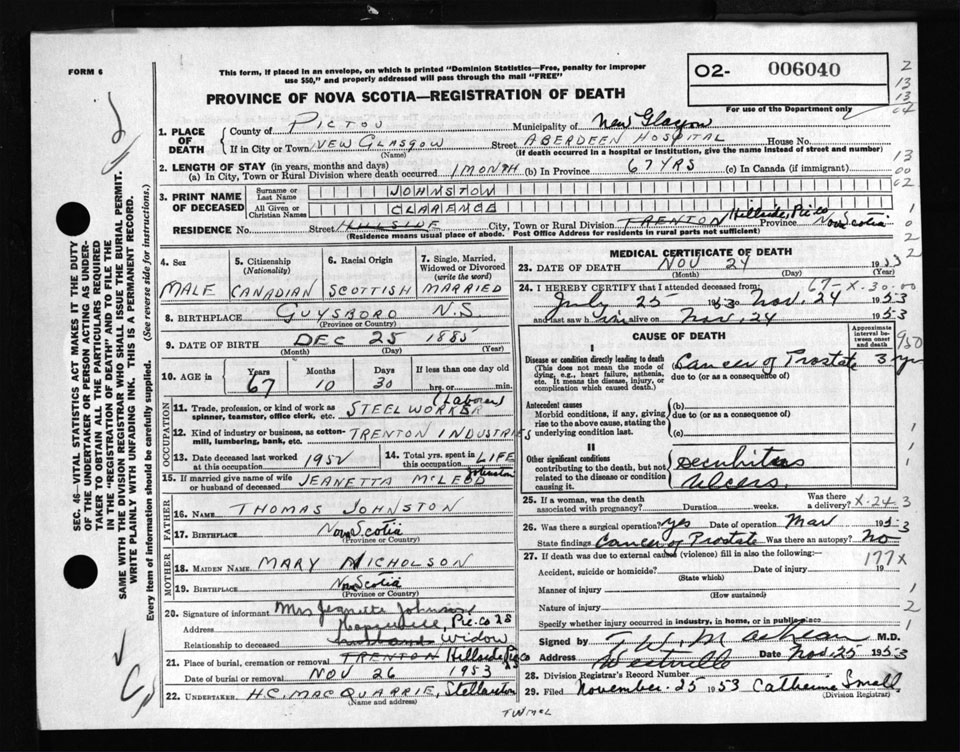 FORM 6
This form, if placed in an envelope, on which is printed "Dominion Statistics—Free, penalty for improper
use $50," and properly addressed will pass through the mail "FREE"
O2- 006040
For use of the Department only
PROVINCE OF NOVA SCOTIA—REGISTRATION OF DEATH
2
13
13
1. PLACE OF DEATH
County of PICTOU Municipality of New Glasgow
If in City or Town NEW GLASGOW Street ABERDEEN HOSPITAL House No.
(Name) (If death occurred in a hospital or institution, give the name instead of street and number)
2. LENGTH OF STAY (in years, months and days)
(a) In City, Town or Rural Division where death occurred 1 MONTH (b) In Province 67 YRS (c) In Canada (if immigrant)
13
00
02
3. PRINT NAME OF DECEASED
Surname or Last Name JOHNSTON
All Given or Christian Names CLARENCE
RESIDENCE No. Street HILLSIDE City, Town or Rural Division TRENTON Hillside, Pic. Co Province Nova Scotia
(Residence means usual place of abode. Post Office Address for residents in rural parts not sufficient)
1
0
2
2
SEC. 46—VITAL STATISTICS ACT MAKES IT THE DUTY
OF THE UNDERTAKER OR PERSON ACTING AS UNDER-
TAKER TO OBTAIN ALL THE PARTICULARS REQUIRED
IN THE "REGISTRATION OF DEATH" AND TO FILE THE
SAME WITH THE DIVISION REGISTRAR WHO SHALL ISSUE THE BURIAL PERMIT.
WRITE PLAINLY WITH UNFADING INK. THIS IS A PERMANENT RECORD.
Every item of information should be carefully supplied. (See reverse side for instructions.)
4. Sex MALE
5. Citizenship (Nationality) CANADIAN
6. Racial Origin SCOTTISH
7. Single, Married, Widowed or Divorced (write the word) MARRIED
8. BIRTHPLACE GUYSBORO N.S.
(Province or Country)
9. DATE OF BIRTH DEC 25 1885
(Month) (Day) (Year)
10. AGE in Years 67 Months 10 Days 30 If less than one day hrs. or min.
OCCUPATION
11. Trade, profession, or kind of work as spinner, teamster, office clerk, etc. STEELWORKER (Laborer)
12. Kind of industry or business, as cotton-mill, lumbering, bank, etc. TRENTON INDUSTRIES
13. Date deceased last worked at this occupation 1952
14. Total yrs. spent in this occupation LIFE
15. If married give name of wife or husband of deceased JEANETTA McLEOD Johnston
FATHER
16. NAME THOMAS JOHNSTON
17. BIRTHPLACE Nova Scotia
(Province or Country)
MOTHER
18. MAIDEN NAME MARY NICHOLSON
19. BIRTHPLACE Nova Scotia
(Province or Country)
20. Signature of informant Mrs Jeanette Johnston
Address Pic. Co
Relationship to deceased husband Widow
21. Place of burial, cremation or removal TRENTON Hillside, Pic Co
Date of burial or removal NOV 26 1953
22. UNDERTAKER H.C. MACQUARRIE, Stellarton
(Name and address)
MEDICAL CERTIFICATE OF DEATH
23. DATE OF DEATH NOV 24 1953
(Month) (Day) (Year)
24. I HEREBY CERTIFY that I attended deceased from: 67-X-30-00
July 25 1953 to Nov. 24 1953
and last saw him alive on Nov. 24
CAUSE OF DEATH
Approximate interval between onset and death
950
I
Disease or condition directly leading to death
(This does not mean the mode of dying, e.g., heart failure, asthenia, etc. It means the disease, injury, or complication which caused death.)
(a) Cancer of Prostate 3 yrs
due to (or as a consequence of)
Antecedent causes
Morbid conditions, if any, giving rise to the above cause, stating the underlying condition last.
(b)
due to (or as a consequence of)
(c)
II
Other significant conditions
contributing to the death, but not related to the disease or condition causing it.
Decubitus
Ulcers.
1
1
1
25. If a woman, was the death associated with pregnancy? Duration: weeks. Was there a delivery? X-24-3
26. Was there a surgical operation? yes Date of operation Mar 1953
State findings Cancer of Prostate Was there an autopsy? No
27. If death was due to external cause (violence) fill in also the following:—
177X
Accident, suicide or homicide? Date of injury 19
(State which)
Manner of injury
(How sustained)
1
Nature of injury
2
Specify whether injury occurred in industry, in home, or in public place
1
Signed by M.D.
Address Westville Date Nov. 25 1953
28. Division Registrar's Record Number
29. Filed November 25 1953 Catherine Small
(Division Registrar)